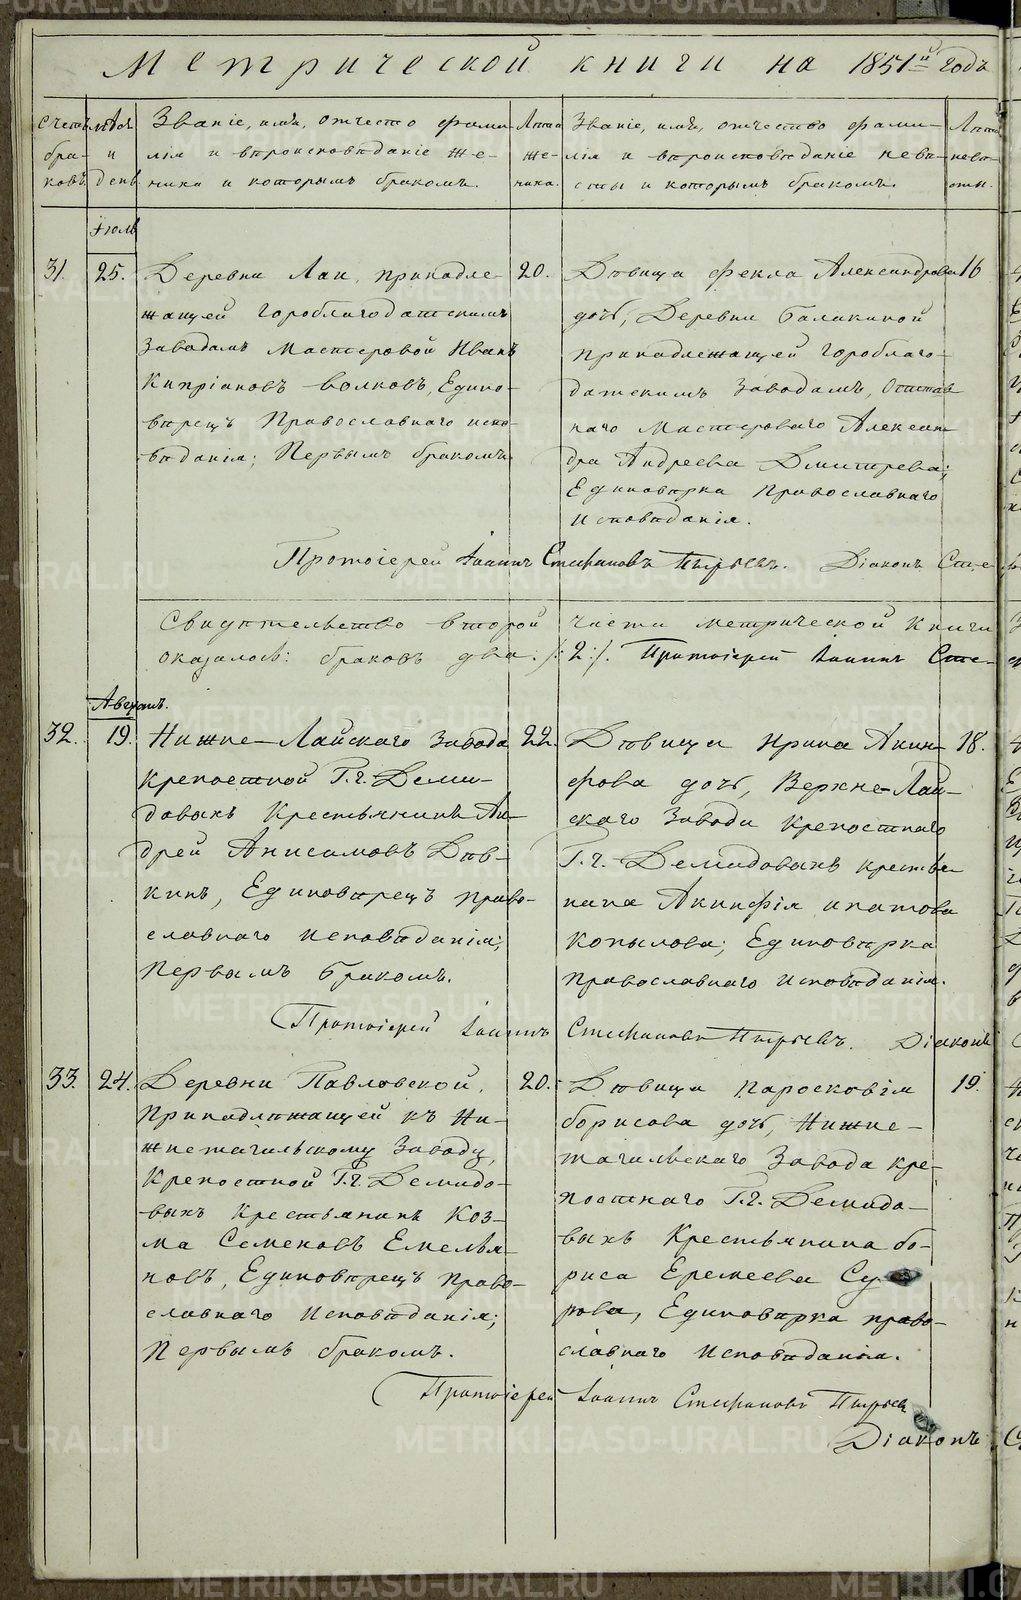 Метрической книги на 1851й годъ
Счетъ браковъ.
Мѣс. и день
Званіе, имя, отчество фами-
лія и вѣроисповѣданіе же-
ниха и которымъ бракомъ.
Лѣта
же-
ниха.
Званіе, имя, отчество фами-
лія и вѣроисповѣданіе невѣ-
сты и которымъ бракомъ.
Лѣта
невѣ-
сты.
Іюль
31.
25.
Деревни Лаи, принадле-
жащей Гороблагодатскимъ
Заводамъ Мастеровой Иванъ
Кипріановъ Волковъ, Едино-
вѣрецъ Православнаго испо-
вѣданія; Первымъ бракомъ
20.
Дѣвица Фекла Александрова
дочь, Деревни Балакиной
принадлежащей Гороблаго-
датскимъ Заводамъ, Отстав
наго Мастероваго Алексан-
дра Андреева Дмитрева;
Единовѣрка Православнаго
Исповѣданія.
16
Протоіерей Іоаннъ Стефановъ Пырьевъ. Діаконъ Сте-
Свидѣтельство второй части метрической Книги
оказалось: браковъ два. /:2:/. Протоіерей Іоаннъ Сте-
Августъ.
32.
19.
Нижне-Лайскаго Завода
крепостной Г.г. Деми-
довыхъ Крестьянинъ Ан-
дрей Анисимовъ Дѣв-
кинъ, Единовѣрецъ Право-
славнаго исповѣданія;
Первымъ бракомъ.
22.
Дѣвица Ирина Акин-
фова дочь, Верхне-Лай-
скаго Завода крепостнаго
Г.г. Демидовыхъ крестья
нина Акинфія Ипатова
Копылова; Единовѣрка
Православнаго исповѣданія.
18.
Протоіерей Іоаннъ Стефановъ Пырьевъ. Діаконъ
33.
24.
Деревни Павловской,
Принадлѣжащей къ Ни-
жнетагильскому Заводу,
Крепостной Г.г. Демидо-
выхъ крестьянинъ Коз-
ма Семеновъ Емелья-
новъ, Единовѣрецъ Право-
славнаго исповѣданія;
Первымъ бракомъ.
20.
Дѣвица Паросковія
Борисова дочь, Нижне-
тагильскаго Завода кре-
постнаго Г.г. Демидо-
выхъ Крестьянина Бо-
риса Еремеева Су
рова, Единовѣрка право-
славнаго Исповѣданія.
19.
Протоіерей Іоаннъ Стефановъ Пырьевъ
Діаконъ